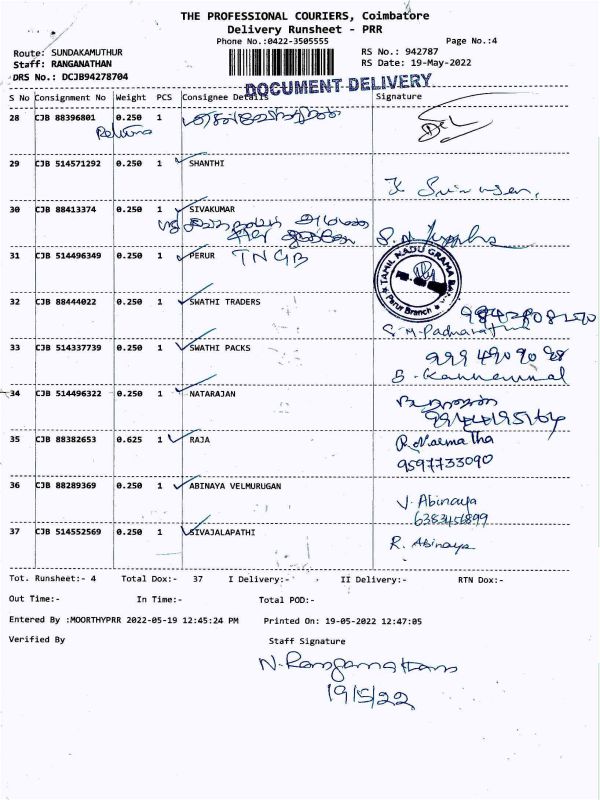 THE PROFESSIONAL COURIERS, Coimbatore
Delivery Runsheet - PRR
Phone No.:0422-3505555
Page No.:4
Route: SUNDAKAMUTHUR
RS No.: 942787
Staff: RANGANATHAN
RS Date: 19-May-2022
DRS No.: DCJB94278704
DOCUMENT DELIVERY
S No Consignment No Weight PCS Consignee Details Signature
28 CJB 88396801 0.250 1
29 CJB 514571292 0.250 1 SHANTHI
30 CJB 88413374 0.250 1 SIVAKUMAR
31 CJB 514496349 0.250 1 PERUR TNGB
TAMIL NADU GRAMA
Perur Branch
32 CJB 88444022 0.250 1 SWATHI TRADERS
33 CJB 514337739 0.250 1 SWATHI PACKS
34 CJB 514496322 0.250 1 NATARAJAN
35 CJB 88382653 0.625 1 RAJA
9597733090
36 CJB 88289369 0.250 1 ABINAYA VELMURUGAN
V. Abinaya
6383456899
37 CJB 514552569 0.250 1 SIVAJALAPATHI
R. Abinaya
Tot. Runsheet:- 4 Total Dox:- 37 I Delivery:- II Delivery:- RTN Dox:-
Out Time:- In Time:- Total POD:-
Entered By :MOORTHYPRR 2022-05-19 12:45:24 PM Printed On: 19-05-2022 12:47:05
Verified By Staff Signature
N. Ranganathan
19/5/22